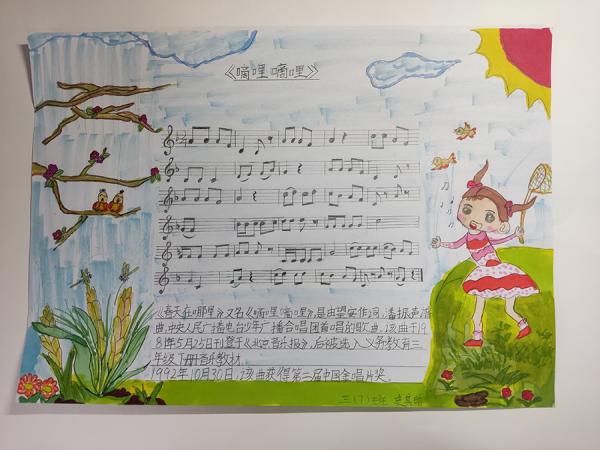 《嘀哩嘀哩》
《春天在哪里》又名《嘀哩嘀哩》,是由望安作词,潘振声谱
曲,中央人民广播电台少年广播合唱团首唱的歌曲,该曲于19
81年5月25日刊登于《北京音乐报》,后被选入义务教育三
年级下册音乐教材.
1992年10月30日,该曲获得第二届中国金唱片奖。
三(7)班